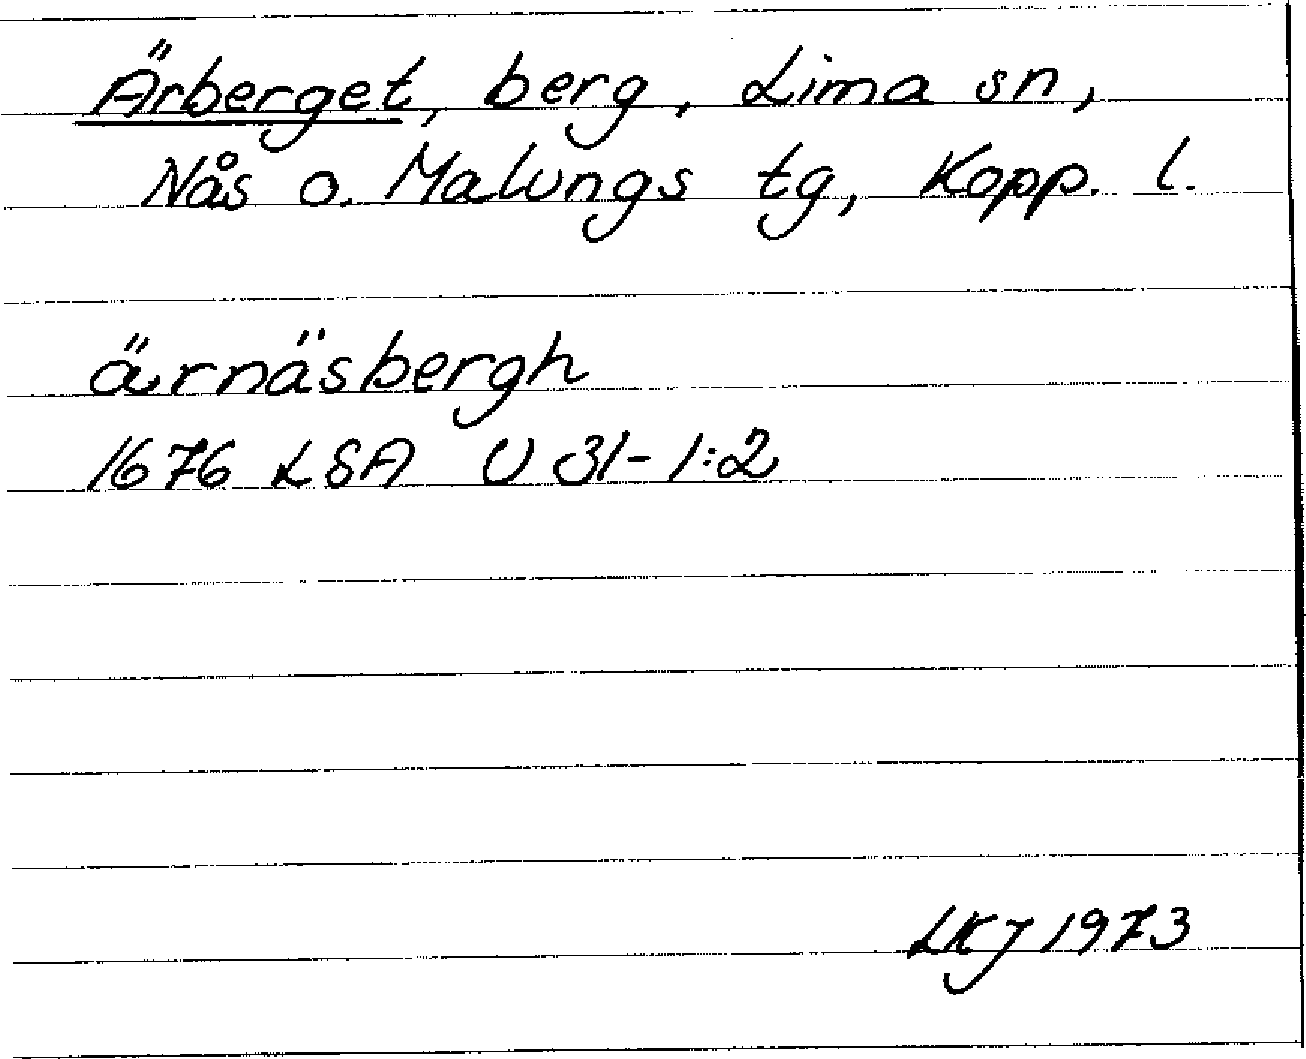 Ärberget, berg, Lima sn,
Nås o. Malungs tg, Kopp. l.
ärnäsbergh
1676 LSA U 31-1:2
LKJ 1973